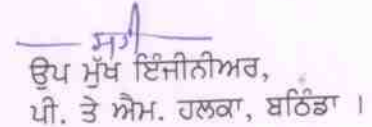 ਸਹੀ/
ਉਪ ਮੁੱਖ ਇੰਜੀਨੀਅਰ,
ਪੀ. ਤੇ ਐਮ. ਹਲਕਾ, ਬਠਿੰਡਾ ।